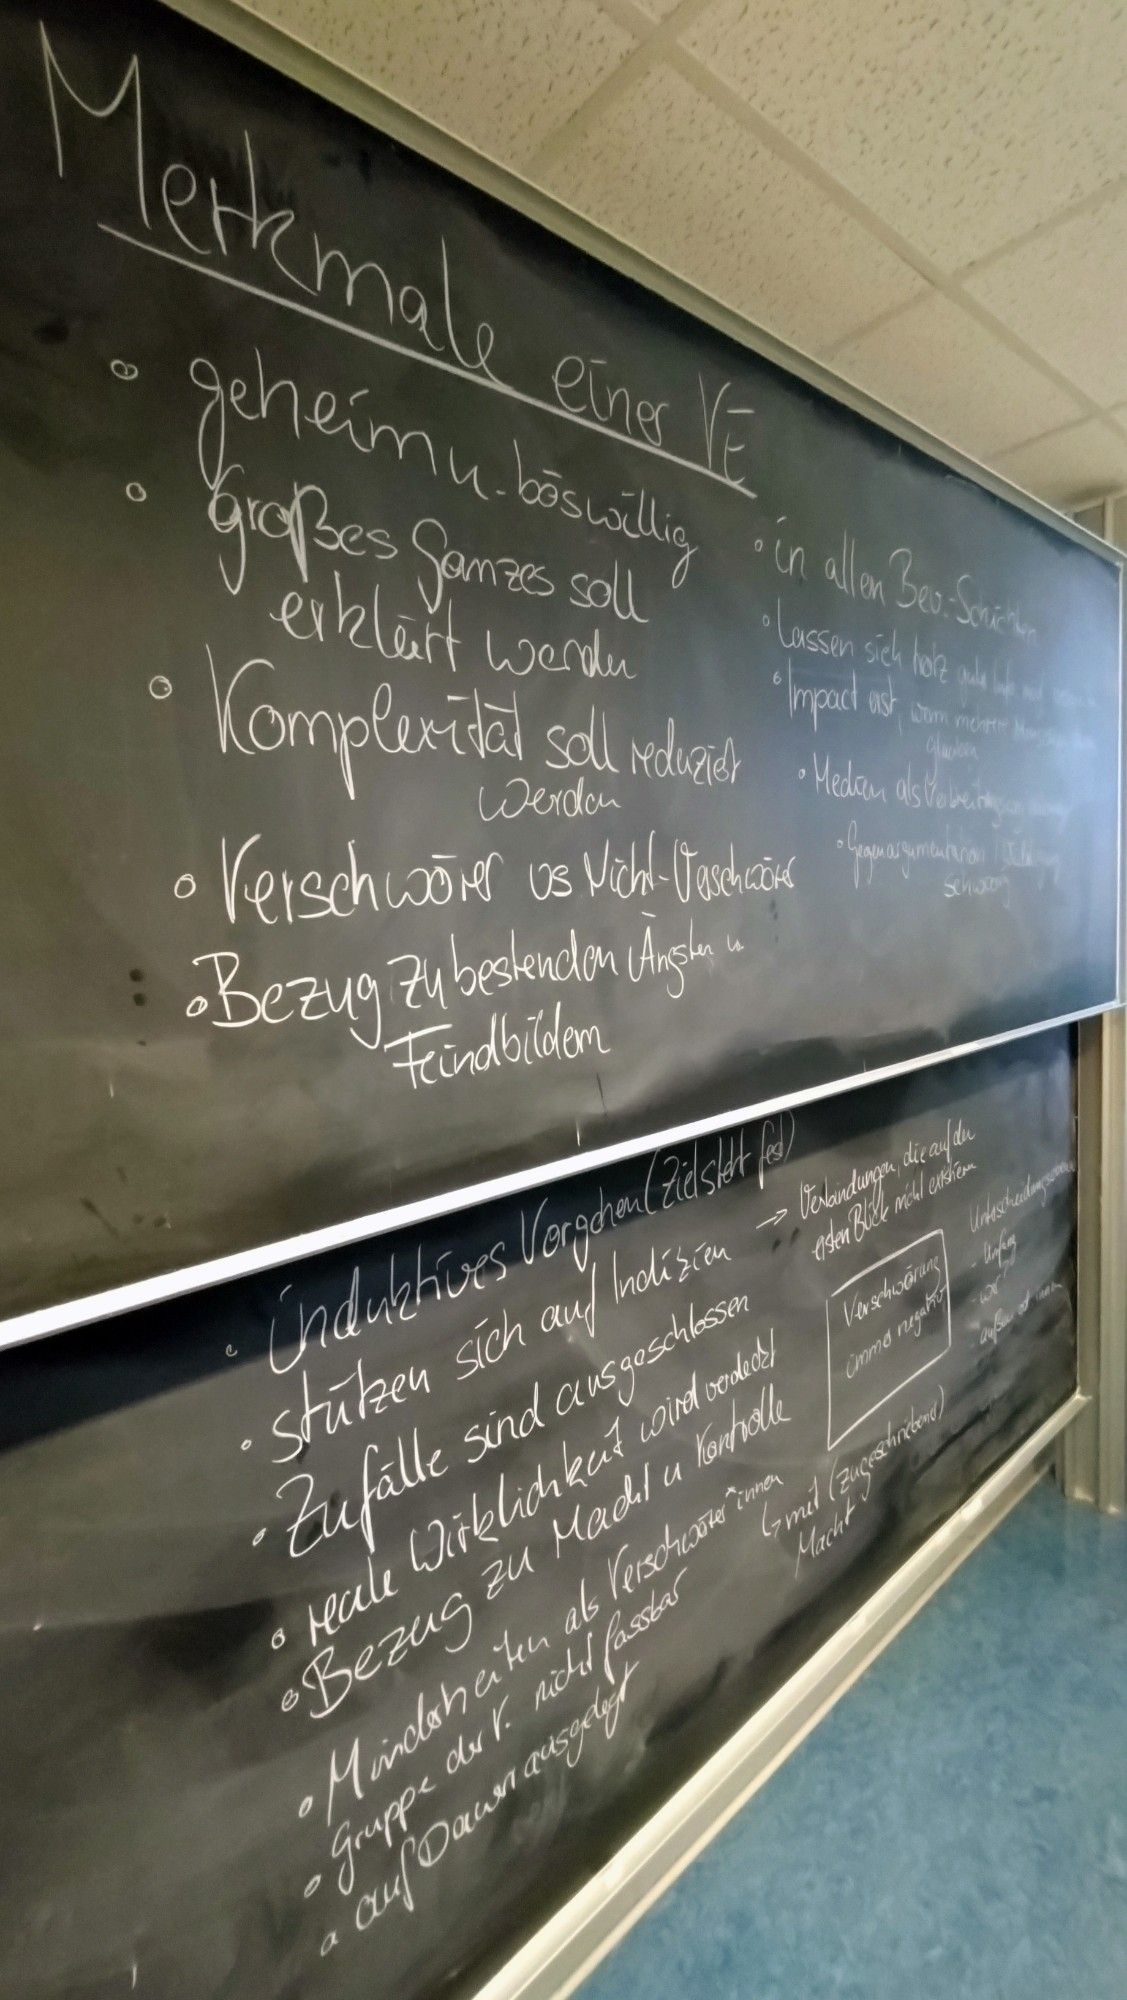 Merkmale einer VE
° geheim u. böswillig
° großes Ganzes soll
erklärt werden
° Komplexität soll reduziert
werden
° Verschwörer vs Nicht-Verschwörer
° Bezug zu bestehenden Ängsten u
Feindbildern
° in allen Bev.-Schichten
° Lassen sich trotz
° Impact erst, wenn mehrere
glauben
° Medien als
° Gegenargumentation
schwierig
° induktives Vorgehen (Ziel steht fest)
° stützen sich auf Indizien
→ Verbindungen, die auf den
ersten Blick nicht existieren
° Zufälle sind ausgeschlossen
° reale Wirklichkeit wird verdeckt
° Bezug zu Macht u Kontrolle
° Minderheiten als Verschwörer*innen
↳ mit (zugeschriebener)
Macht
° Gruppe der V. nicht fassbar
° auf Dauer ausgelegt
Verschwörung
immer negativ
- Umfang
- wo?